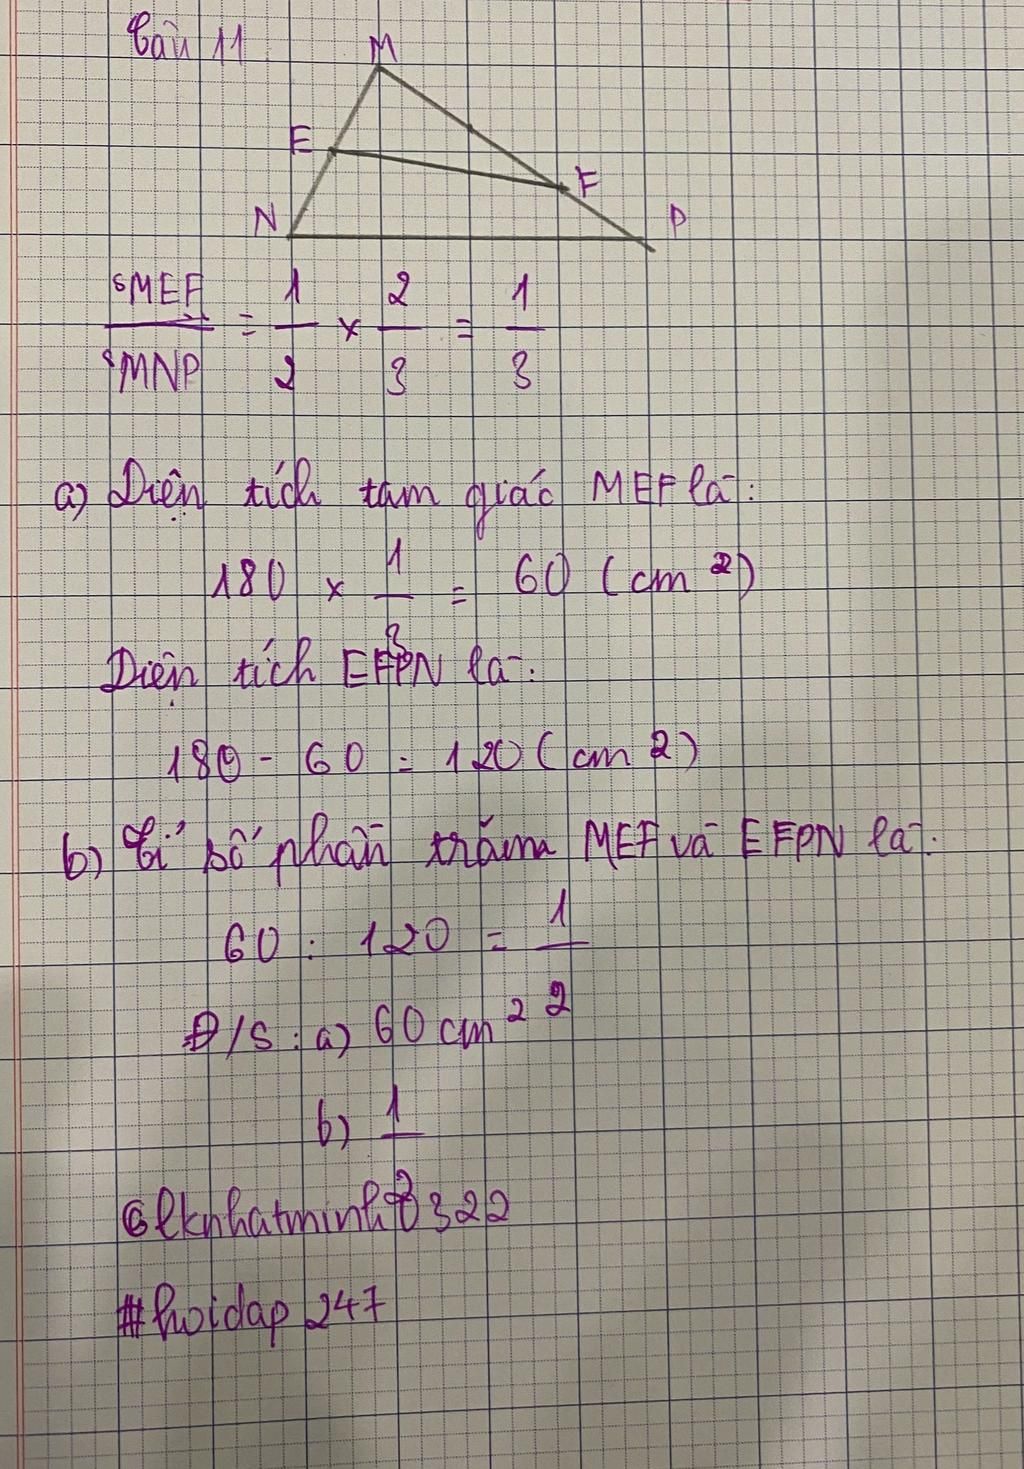 Câu 11
M
E
F
N
P
SMEF / SMNP = 1/2 x 2/3 = 1/3
a) Diện tích tam giác MEF là:
180 x 1/3 = 60 (cm 2)
Diện tích EFPN là:
180 - 60 = 120 (cm 2)
b) Tỉ số phần trăm MEF và EFPN là:
60 : 120 = 1/2
Đ/S : a) 60 cm 2
b) 1/2
@lknhatminh8322
#hoidap 247